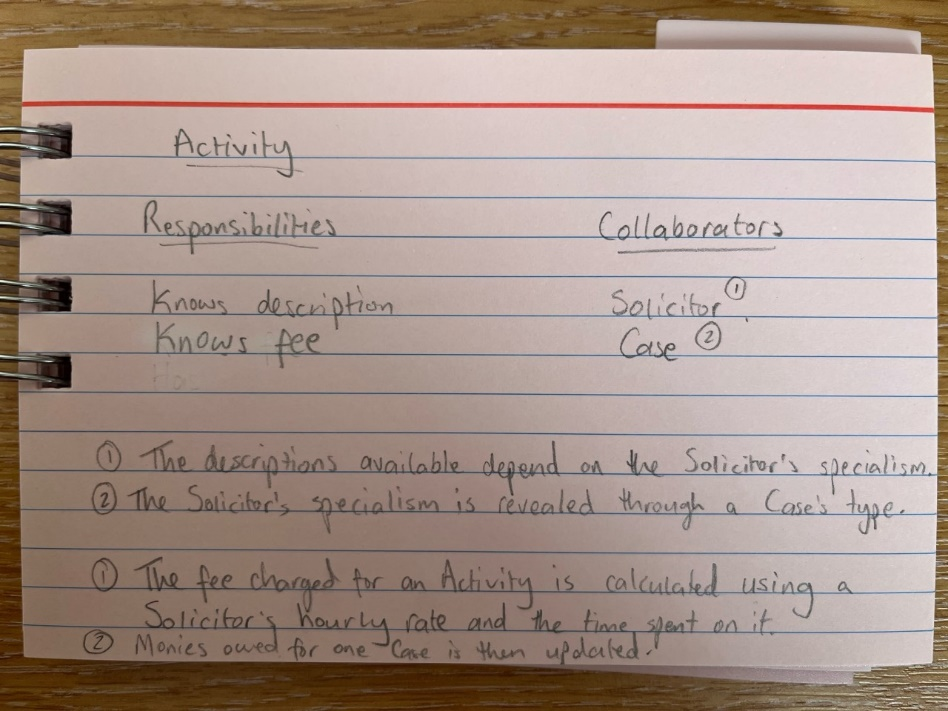 Activity
Responsibilities Collaborators
Knows description Solicitor ①
Knows fee Case ②
① The descriptions available depend on the Solicitor's specialism.
② The Solicitor's specialism is revealed through a Case's type.
① The fee charged for an Activity is calculated using a
Solicitor's hourly rate and the time spent on it.
② Monies owed for one Case is then updated.